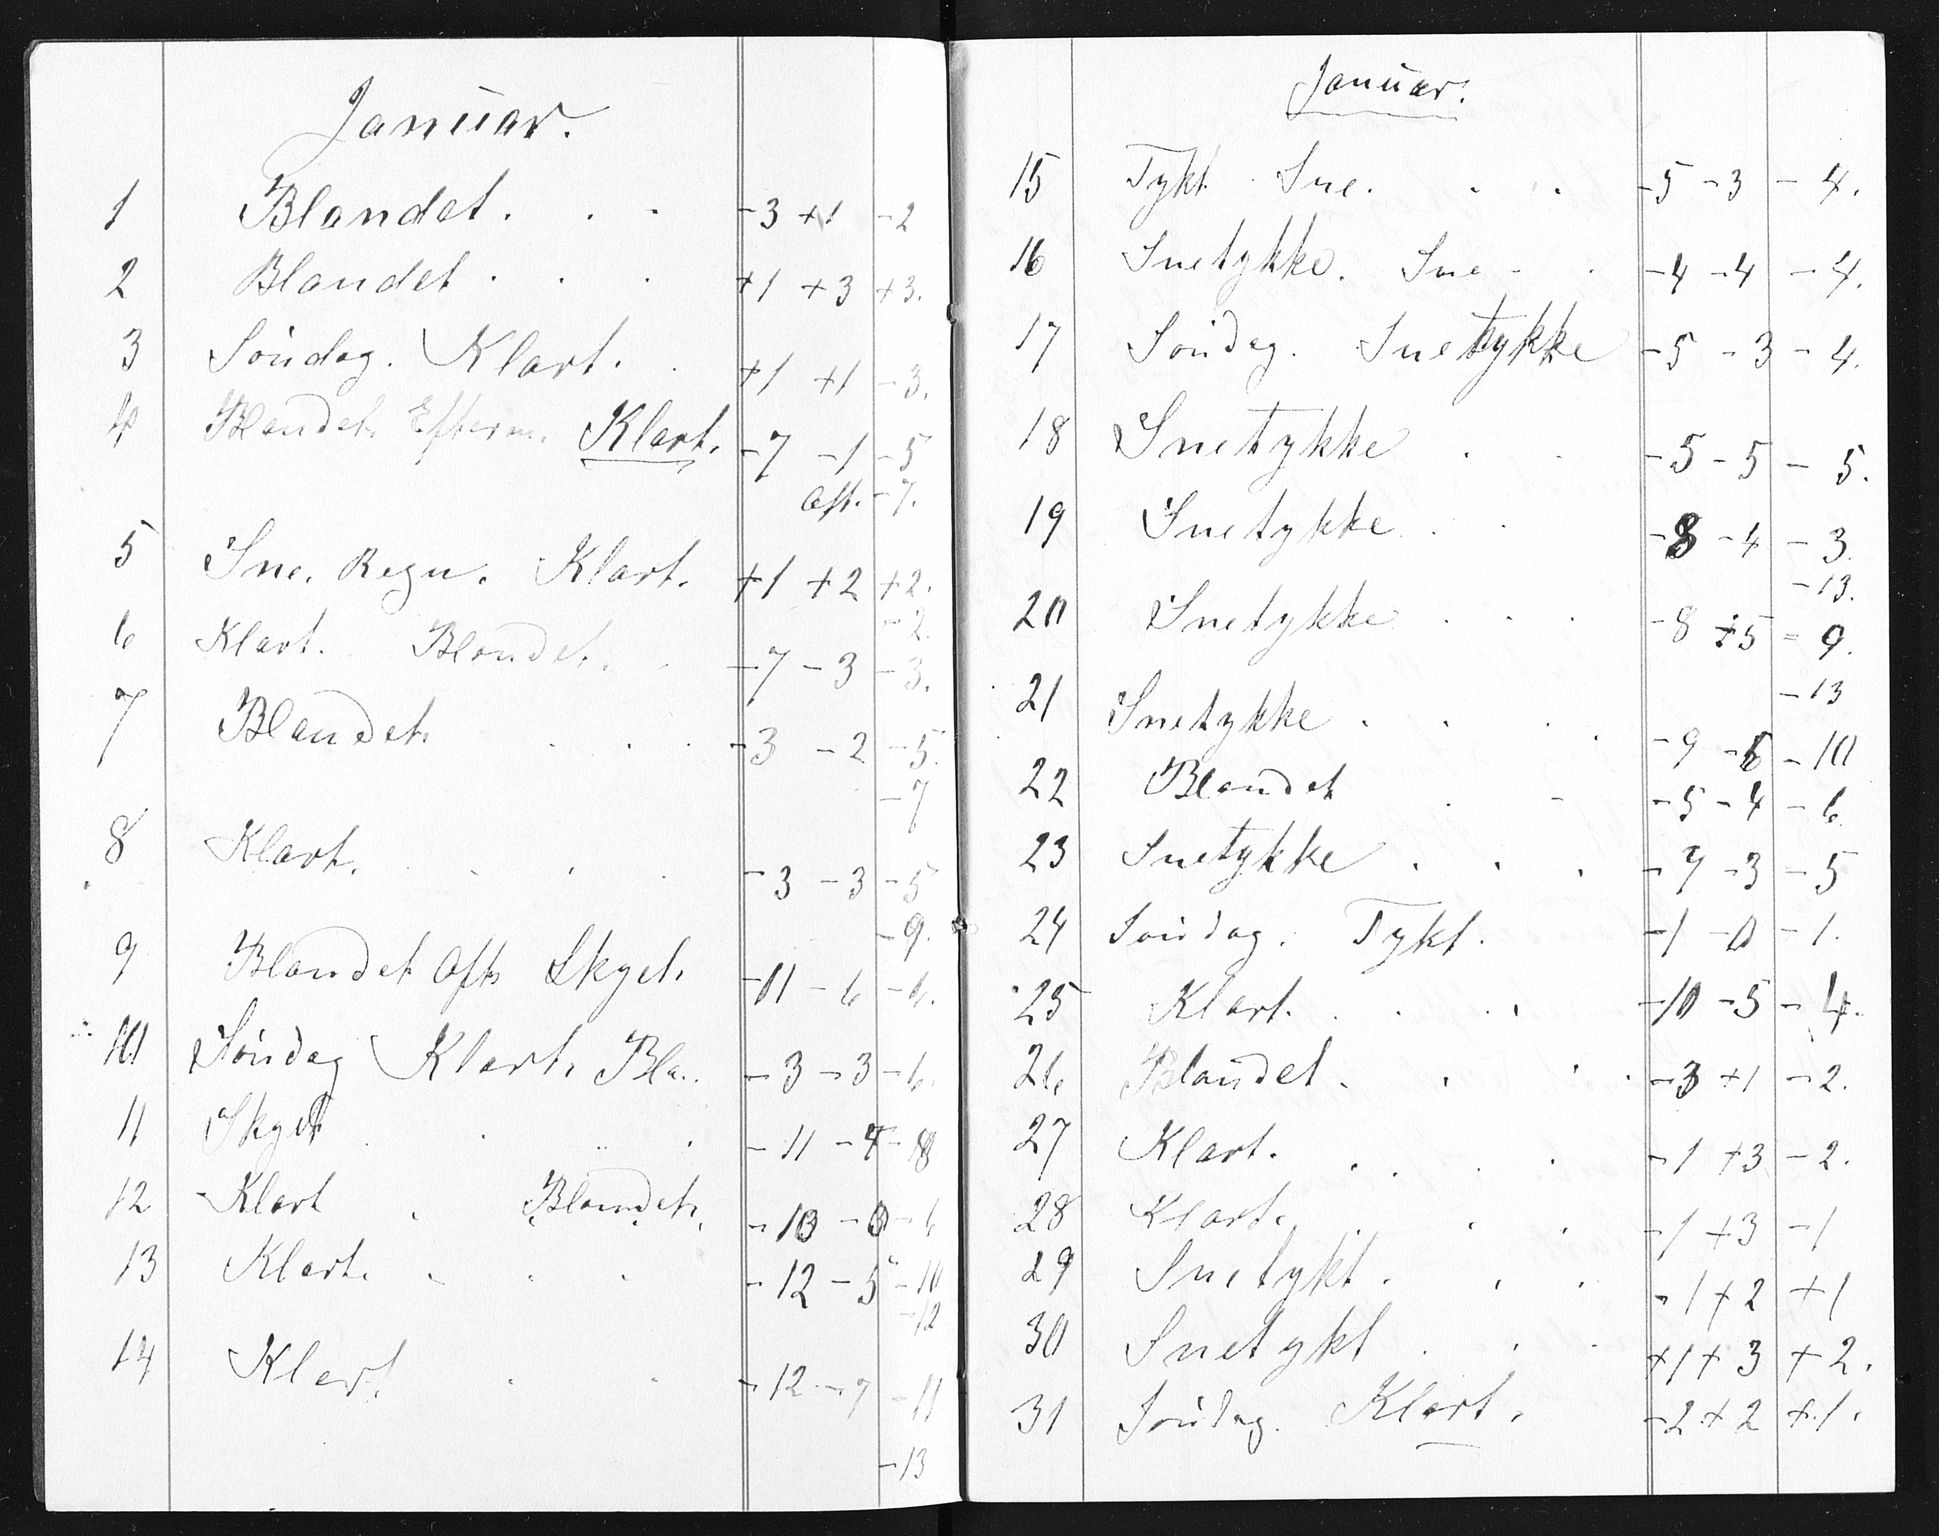 Januar.
1 Blandet. . . -3 +1 -2
2 Blandet . . . +1 +3 +3.
3 Søndag. Klart. . +1 +1 -3.
4 Blandet. Efterm. Klart. -7 -1 -5
Aft. -7.
5 Sne. Regn. Klart. +1 +2 +2.
-2
6 Klart. Blandet. . -7 -3 -3.
7 Blandet. . . . -3 -2 -5.
-7
8 Klart. . . . -3 -3 -5
-9.
9 Blandet Aft. Skyet. -11 -6 -6.
10 Søndag Klart. Bla.. -3 -3 -6.
11 Skyet . . . -11 -4 -8
12 Klart . Blandet. -10 -0 -6
13 Klart. . . . -12 -5 -10
-12
14 Klart. . . -12 -7 -11
-13
Januar.
15 Tykt. Sne. . . -5 -3 -4.
16 Snetykke. Sne . . -4 -4 -4.
17 Søndag. Snetykke -5 -3 -4.
18 Snetykke . . -5 -5 -5.
19 Snetykke . . -8 -4 -3.
-13.
20 Snetykke . . . -8 +5 -9.
-13
21 Snetykke . . . . -9 -6 -10
22 Blandet . . -5 -4 -6.
23 Snetykke . . . -7 -3 -5
24 Søndag. Tykt. -1 -0 -1.
25 Klart. . . . -10 -5 -4.
26 Blandet. . . . -3 +1 -2.
27 Klart. . . . . -1 +3 -2.
28 Klart. . . . -1 +3 -1
29 Snetykt. . . -1 +2 +1
30 Snetykt . . . +1 +3 +2.
31 Søndag. Klart. -2 +2 +1.